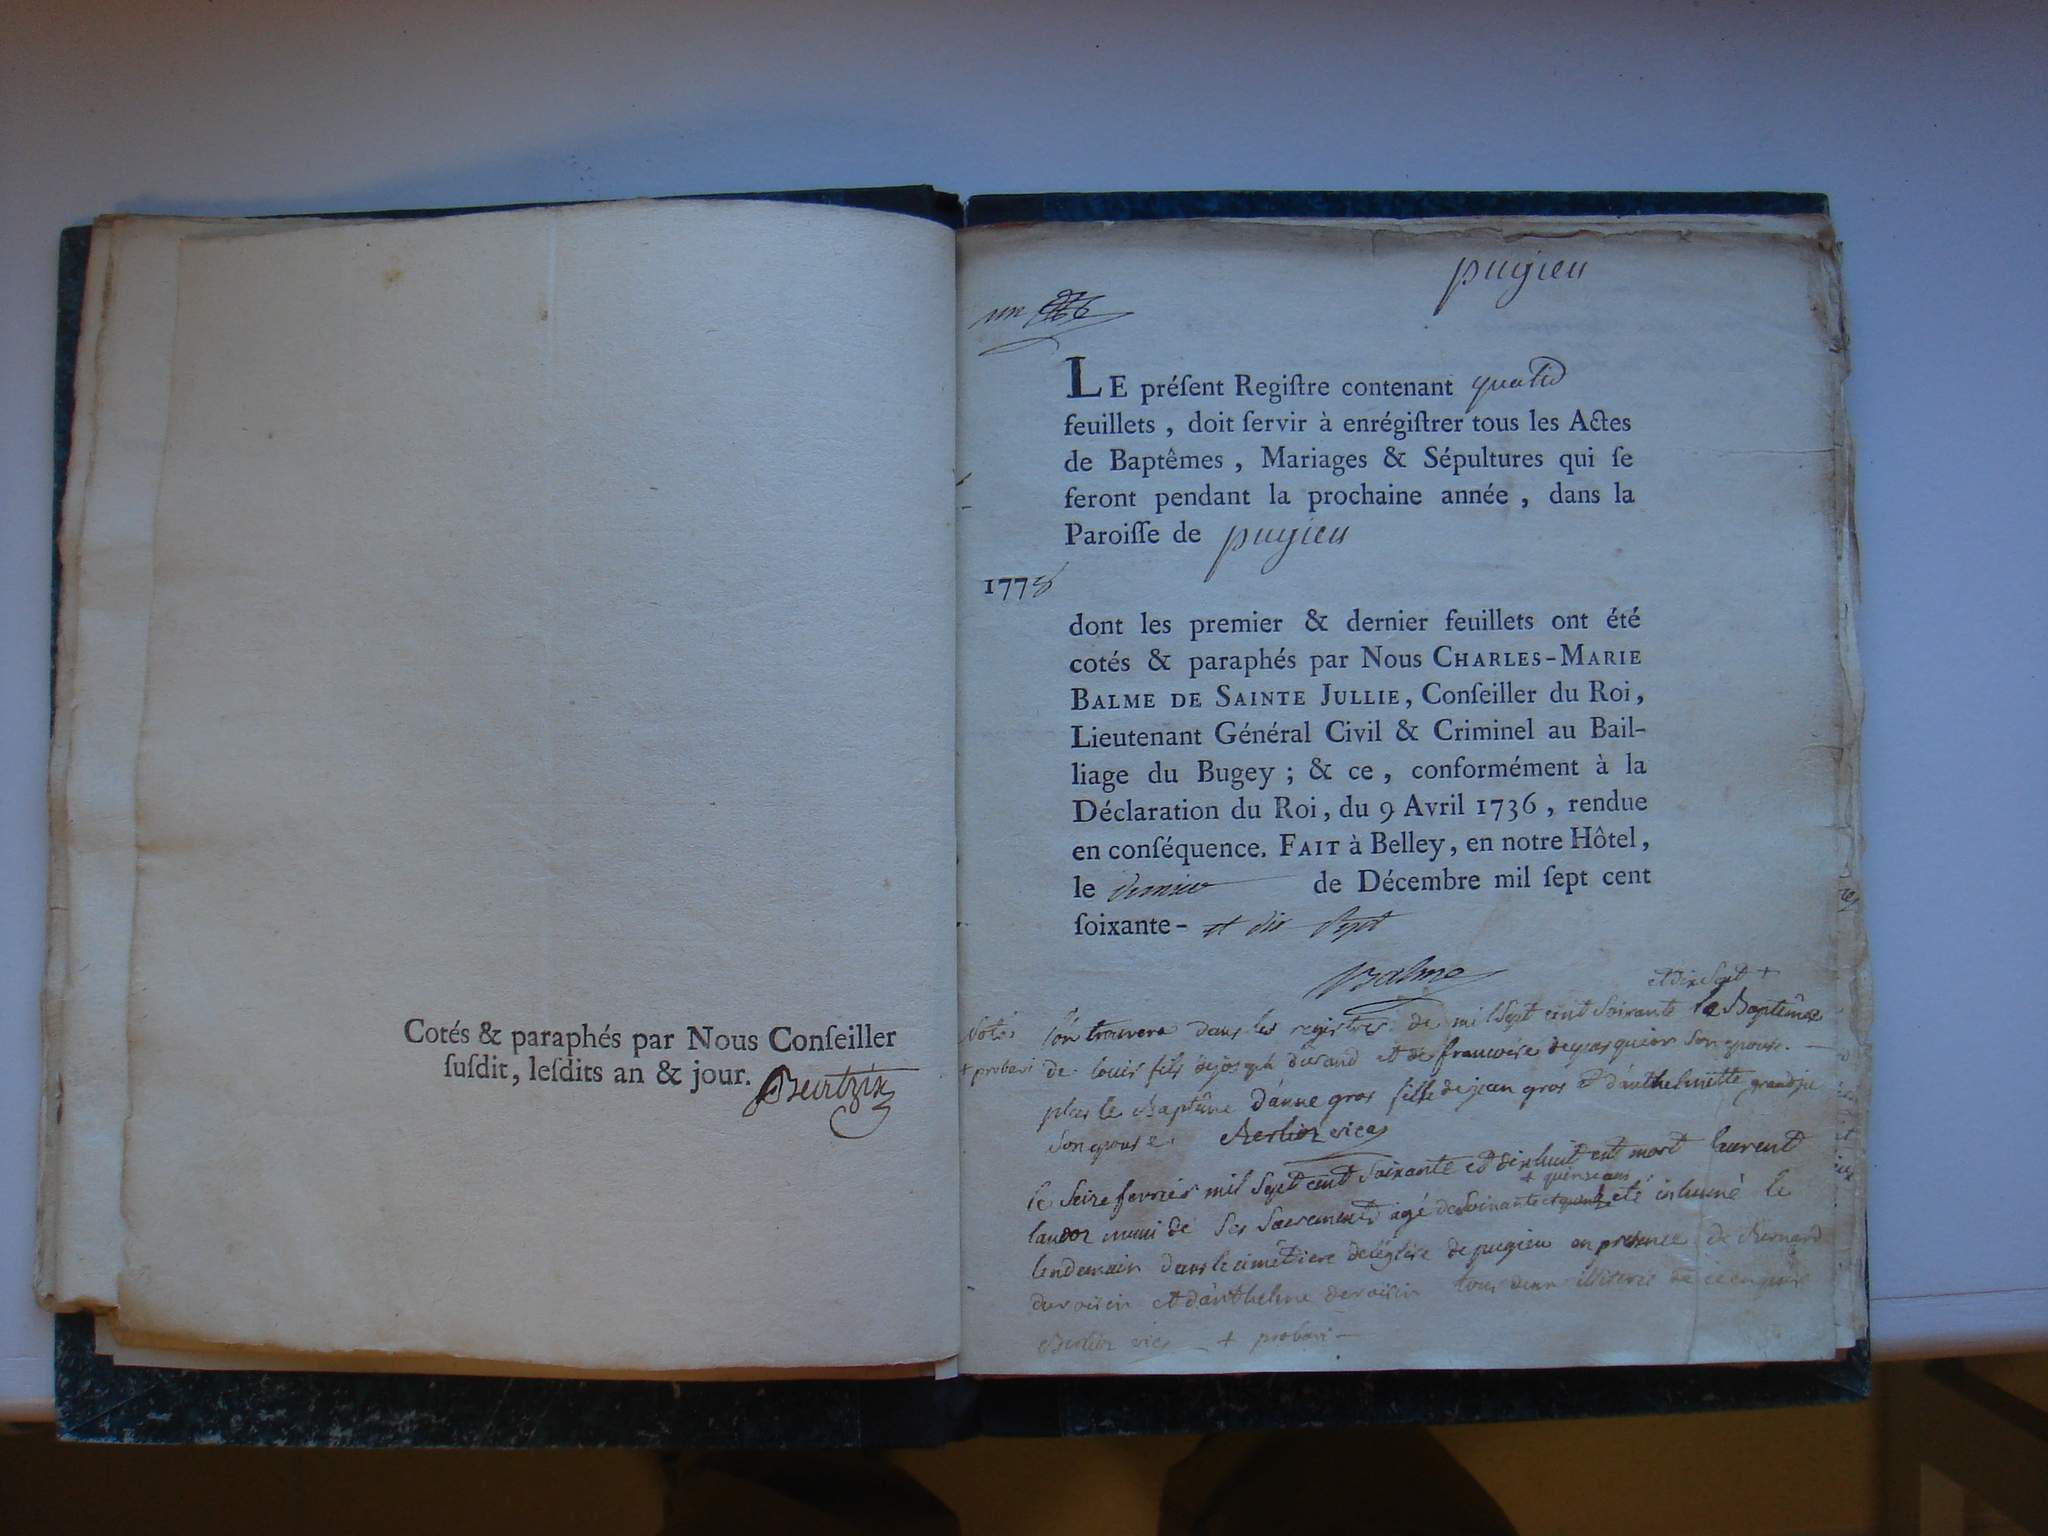 Cotés & paraphés par Nous Conſeiller
ſuſdit, leſdits an & jour.
pugieu
un
LE préſent Regiſtre contenant quatre
feuillets, doit ſervir à enrégiſtrer tous les Actes
de Baptêmes, Mariages & Sépultures qui ſe
feront pendant la prochaine année, dans la
Paroiſſe de pugieu
1778
dont les premier & dernier feuillets ont été
cotés & paraphés par Nous CHARLES-MARIE
BALME DE SAINTE JULLIE, Conſeiller du Roi,
Lieutenant Général Civil & Criminel au Bail-
liage du Bugey; & ce, conformément à la
Déclaration du Roi, du 9 Avril 1736, rendue
en conſéquence. FAIT à Belley, en notre Hôtel,
le dernier de Décembre mil ſept cent
ſoixante- et dix Sept
Balme
et dix Sept +
l'on trouvera dans les registres de mil Sept cent Soixante le Baptême
+ probavi de louis fils de joseph durand et de francoise depasquier Son epouse. —
plus le Baptême d'anne gros fille de jean gros et d'anthelmette grandje
Son epouse. Berlioz vice
le Seize fevrier mil Sept cent Soixante et dix huit est mort laurent
+ quinze ans
muni de Ses Sacrements agé de Soixante et été inhumé le
lendemain dans le cimetiere de l'églize de pugieu en presence de Bernard
devoisin et d'anthelme devoisin tous deux illiteres de ce enquis
Berlioz vice + probavi —